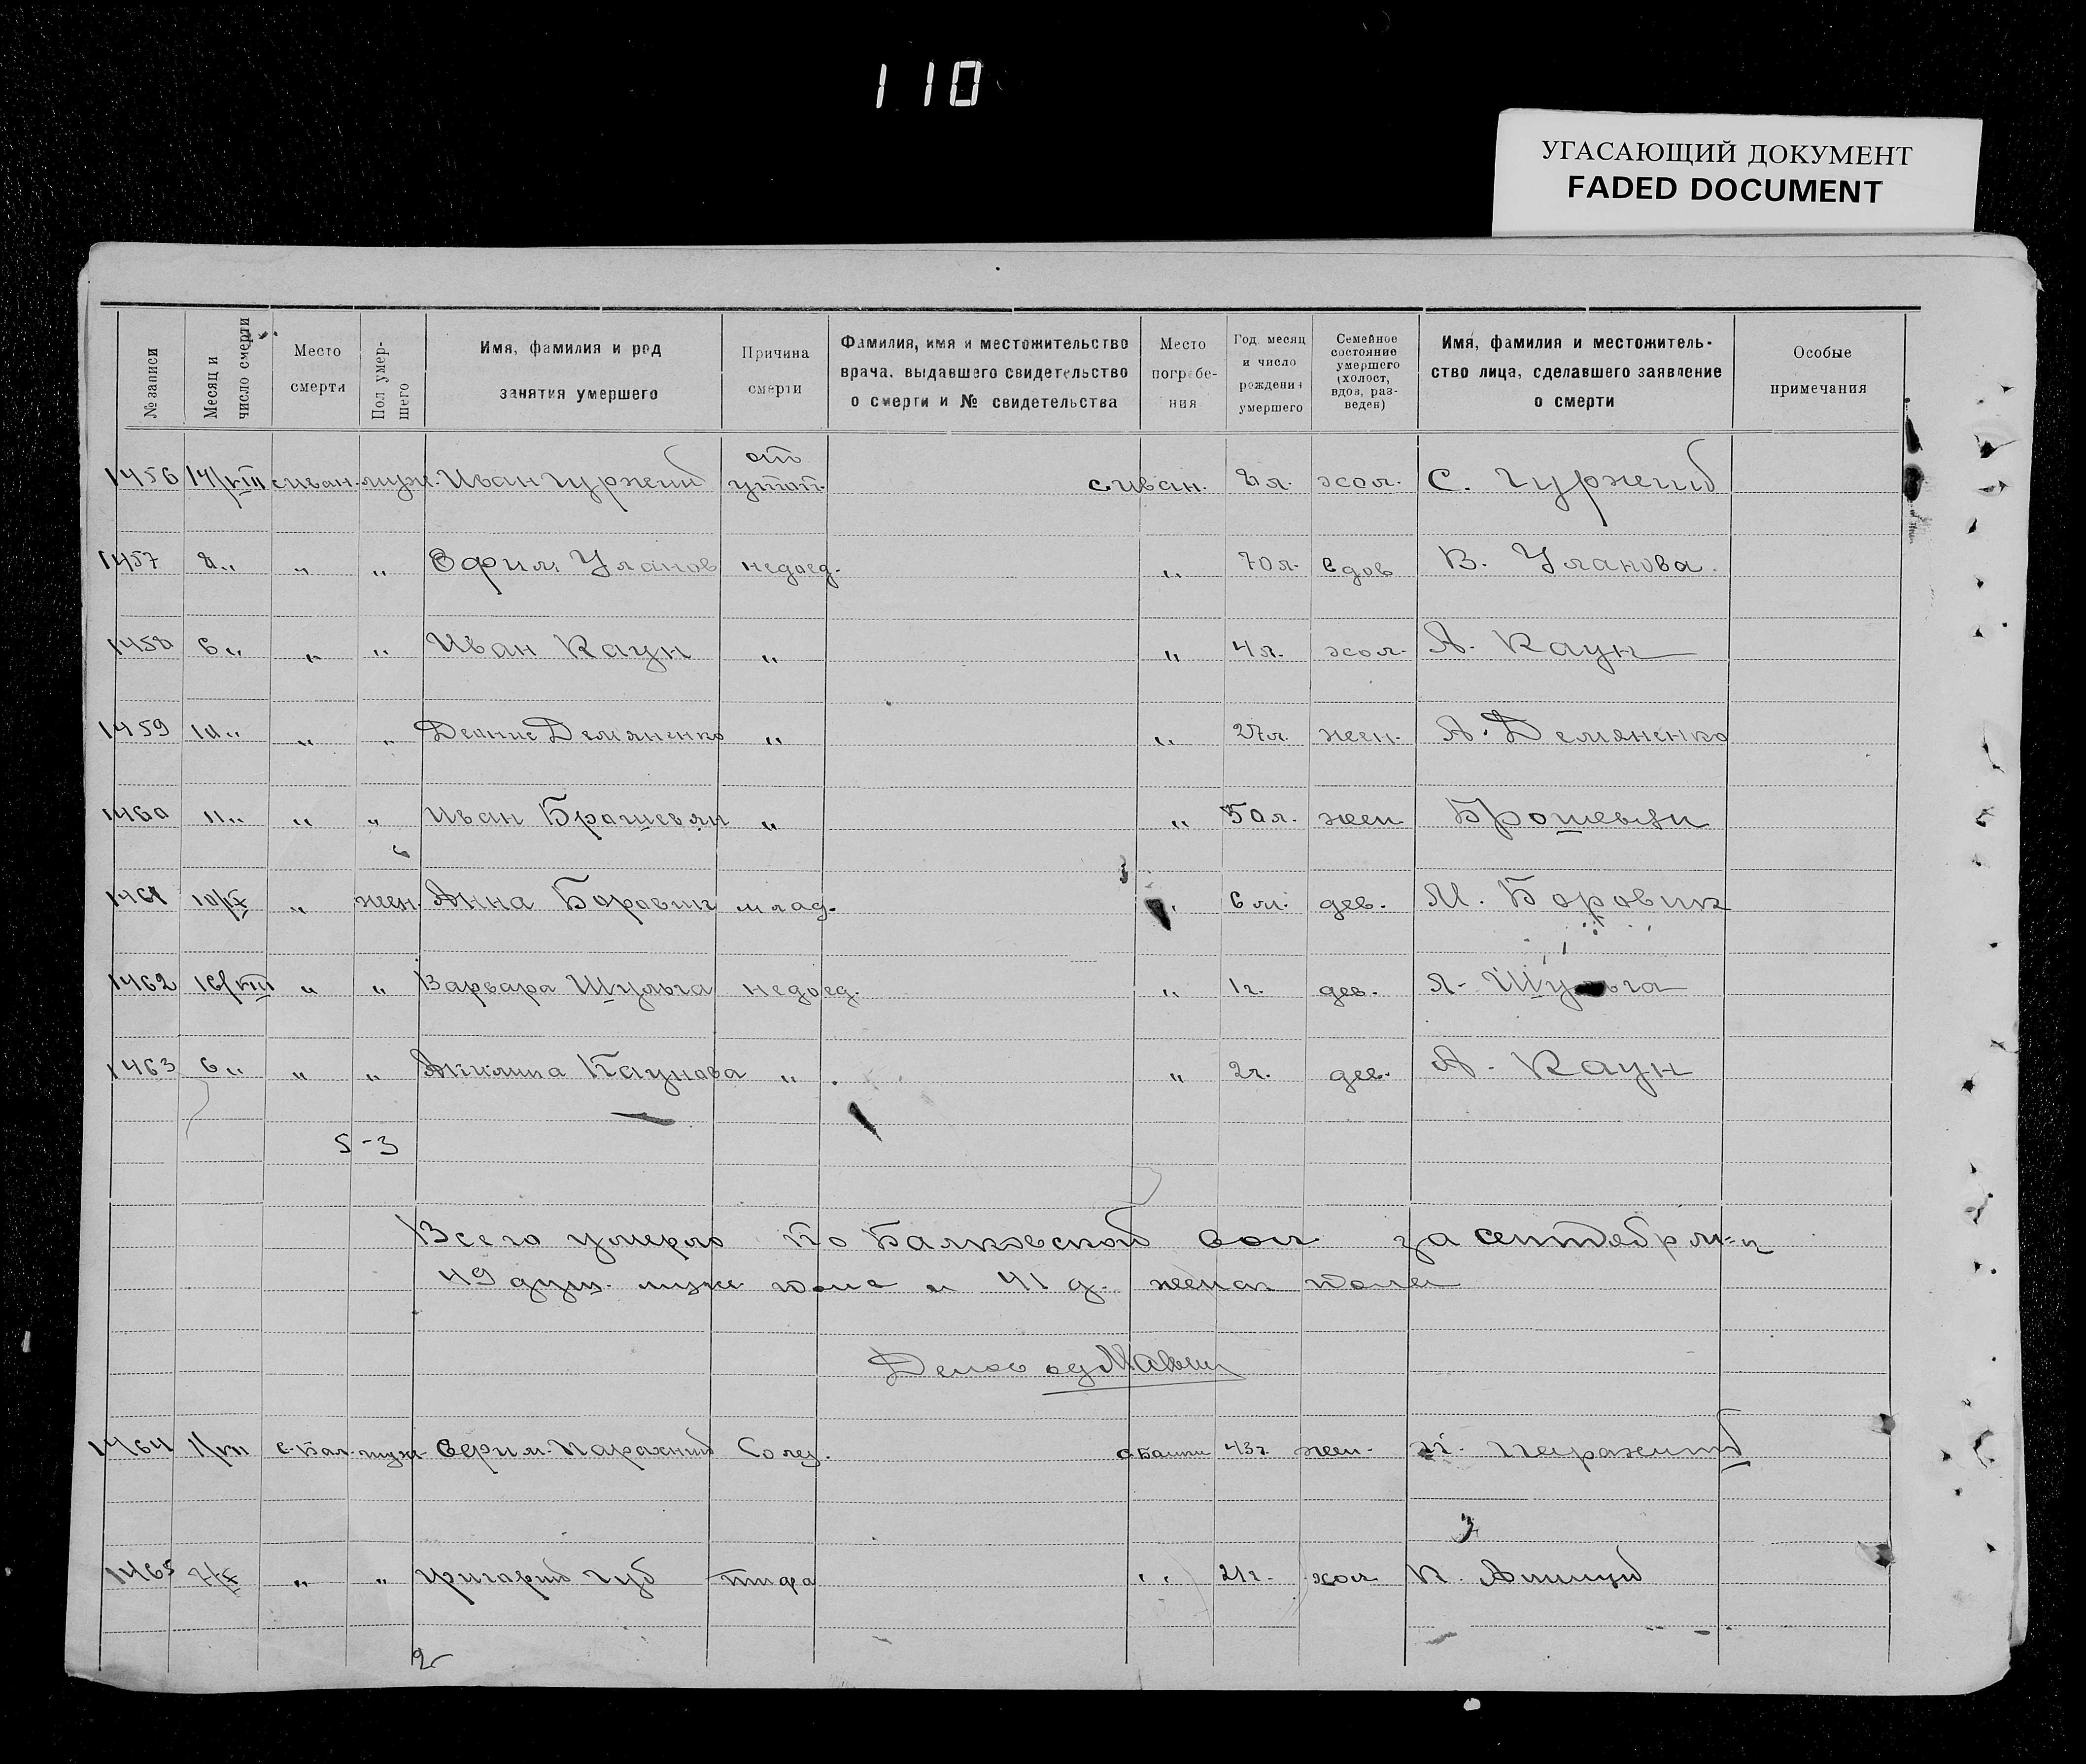 110
УГАСАЮЩИЙ ДОКУМЕНТ
FADED DOCUMENT
№ записи
Месяц и число смерти
Место смерти
Пол умершего
Имя, фамилия и род занятия умершего
Причина смерти
Фамилия, имя и местожительство врача, выдавшего свидетельство о смерти и № свидетельства
Место погребения
Год, месяц и число рождения умершего
Семейное состояние умершего (холост, вдов, разведен)
Имя, фамилия и местожительство лица, сделавшего заявление о смерти
Особые примечания
1456 14/VIII с Иван. муж. Иван Гуржий от утоп. с Иван. 8 л. хол. С. Гуржий
1457 8 „ „ „ Ефим Уланов недоед. „ 70 л. вдов В. Уланова
1458 6 „ „ „ Иван Каун „ „ 4 л. хол. А. Каун
1459 10 „ „ „ Демяненко „ „ 27 л. жен. А. Демяненко
1460 11 „ „ „ Иван „ „ 50 л. жен
1461 10/IX „ жен. Анна Боровик млад. „ 6 м. дев. М. Боровик
1462 16/VIII „ „ Варвара Шульга недоед. „ 1 г. дев. Я. Шульга
1463 6 „ „ „ Акилина Каунова „ „ 2 г. дев. А. Каун
5-3
Всего умерло по Балковской вол за сентябр м-ц
49 душ. муж пола и 41 д. женск пола
1464 с. Бал. муж. 43 г. жен.
1465 „ „ Григорий Губ тифа „ 21 г. хол К.
2